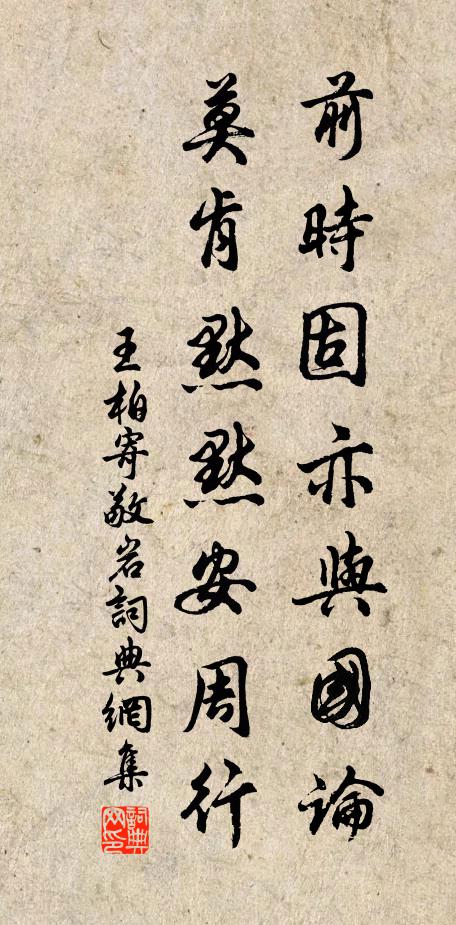 前時固亦與國論
莫肯默默安周行
王柏寄敬岩詞典網集
詞典網印